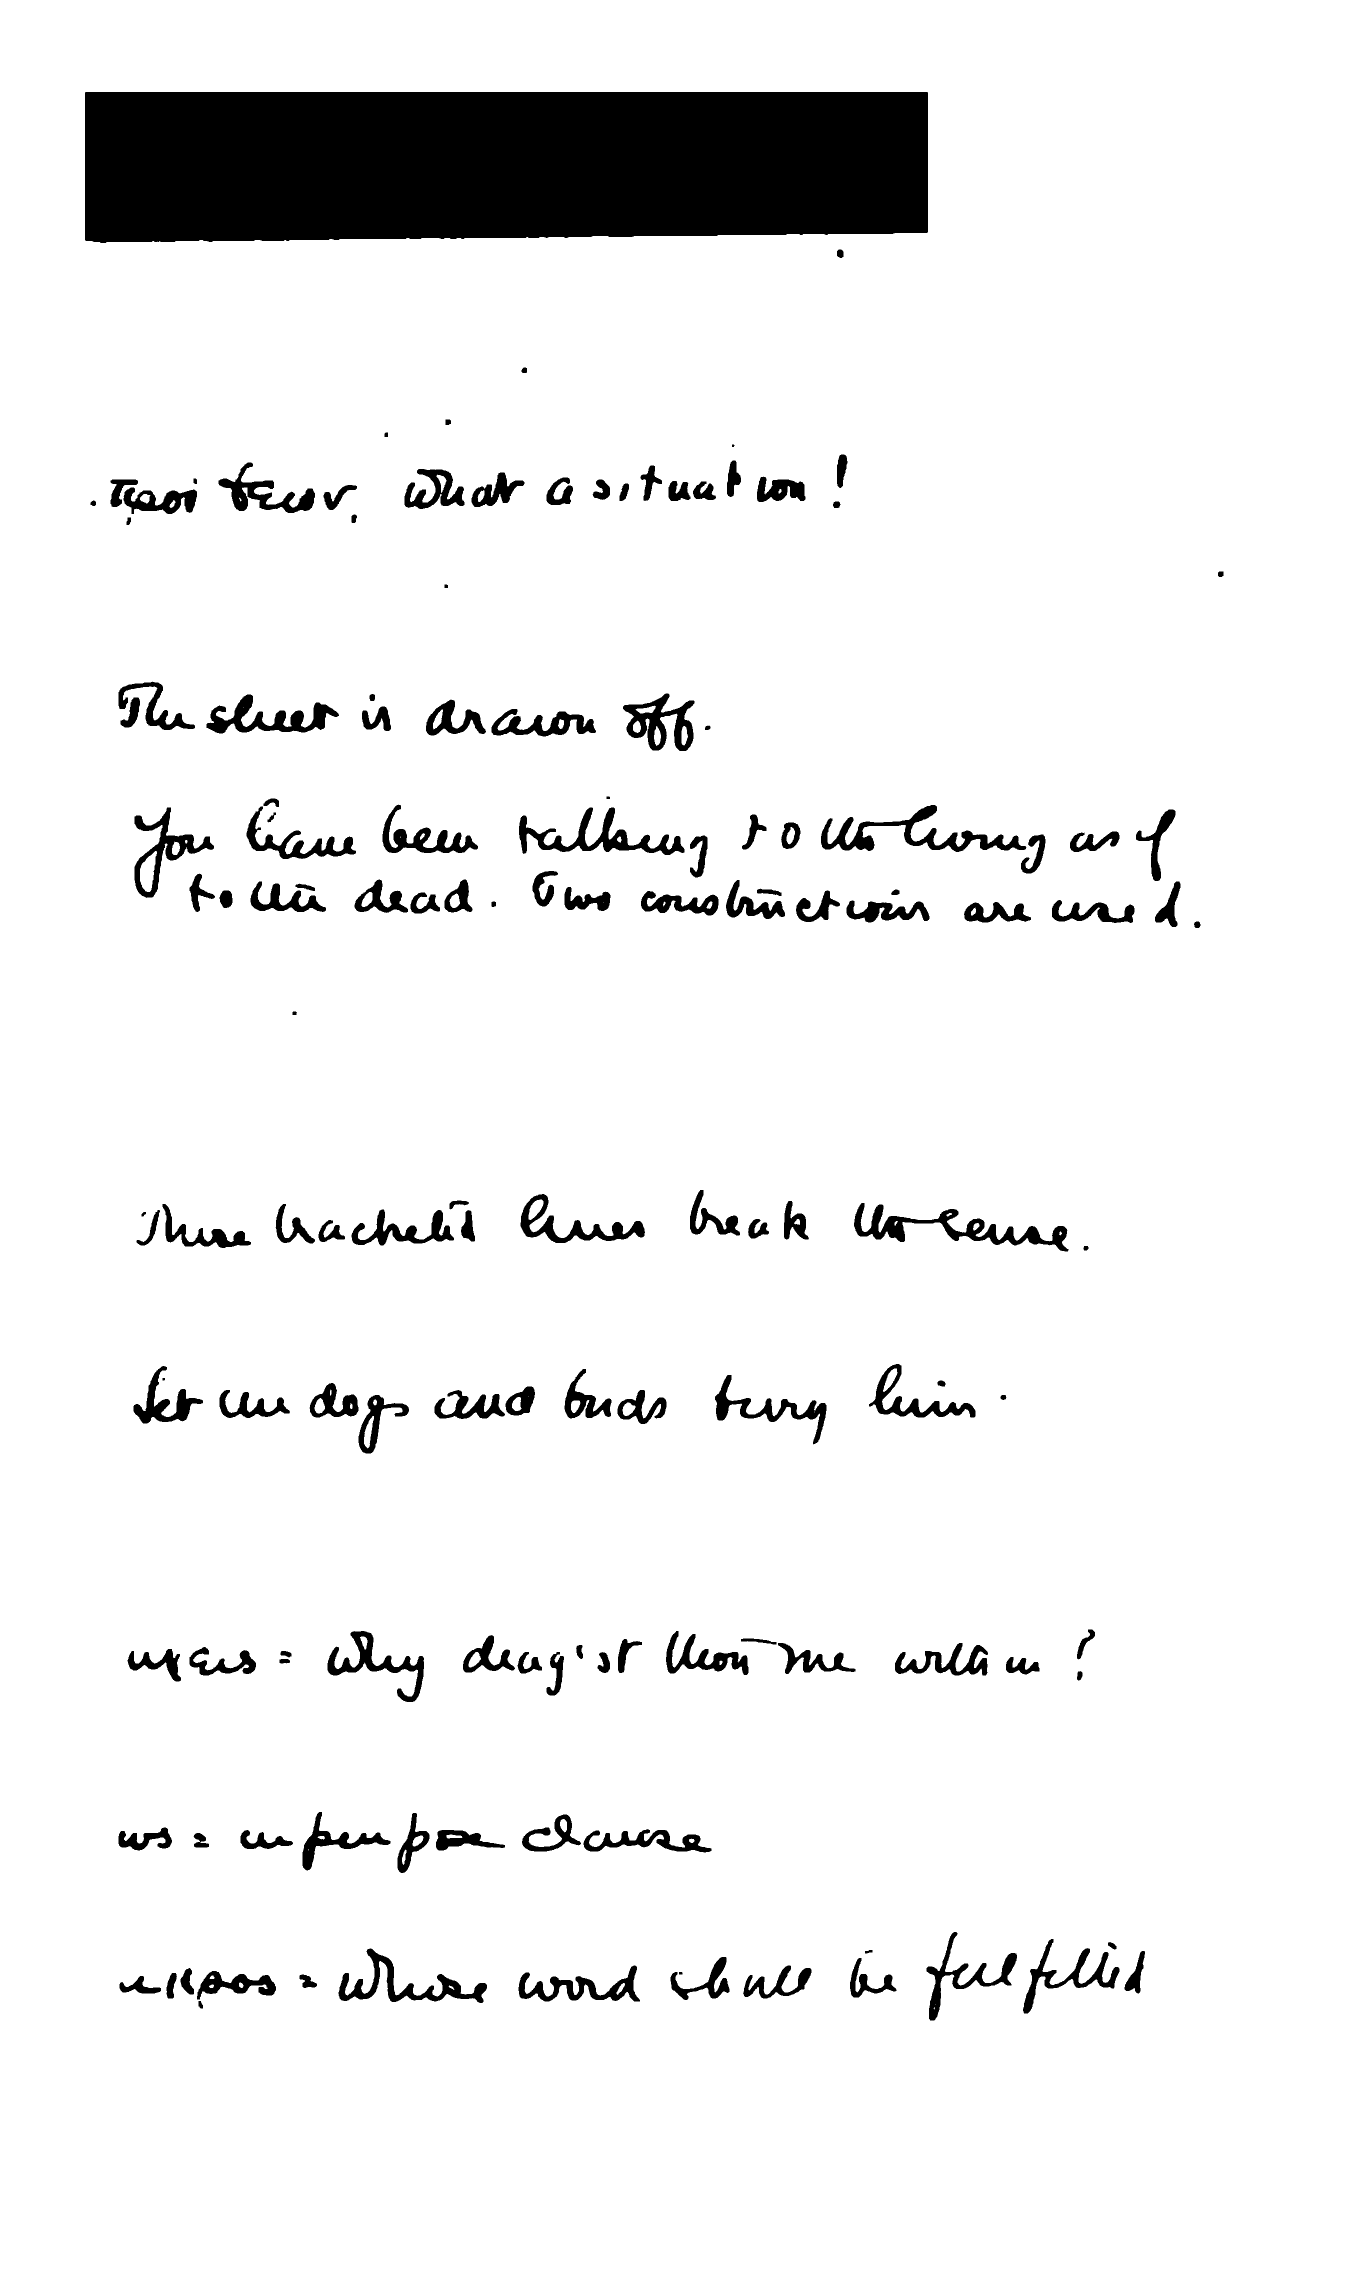 What a situation!
The sheet is drawn off.
You have been talking to the living as if
to the dead. Two constructions are used.
These bracketed lines break the sense.
Let the dogs and birds bury him.
= Why drag'st thou me within?
ws = in purpose clause
= Whose word shall be fulfilled